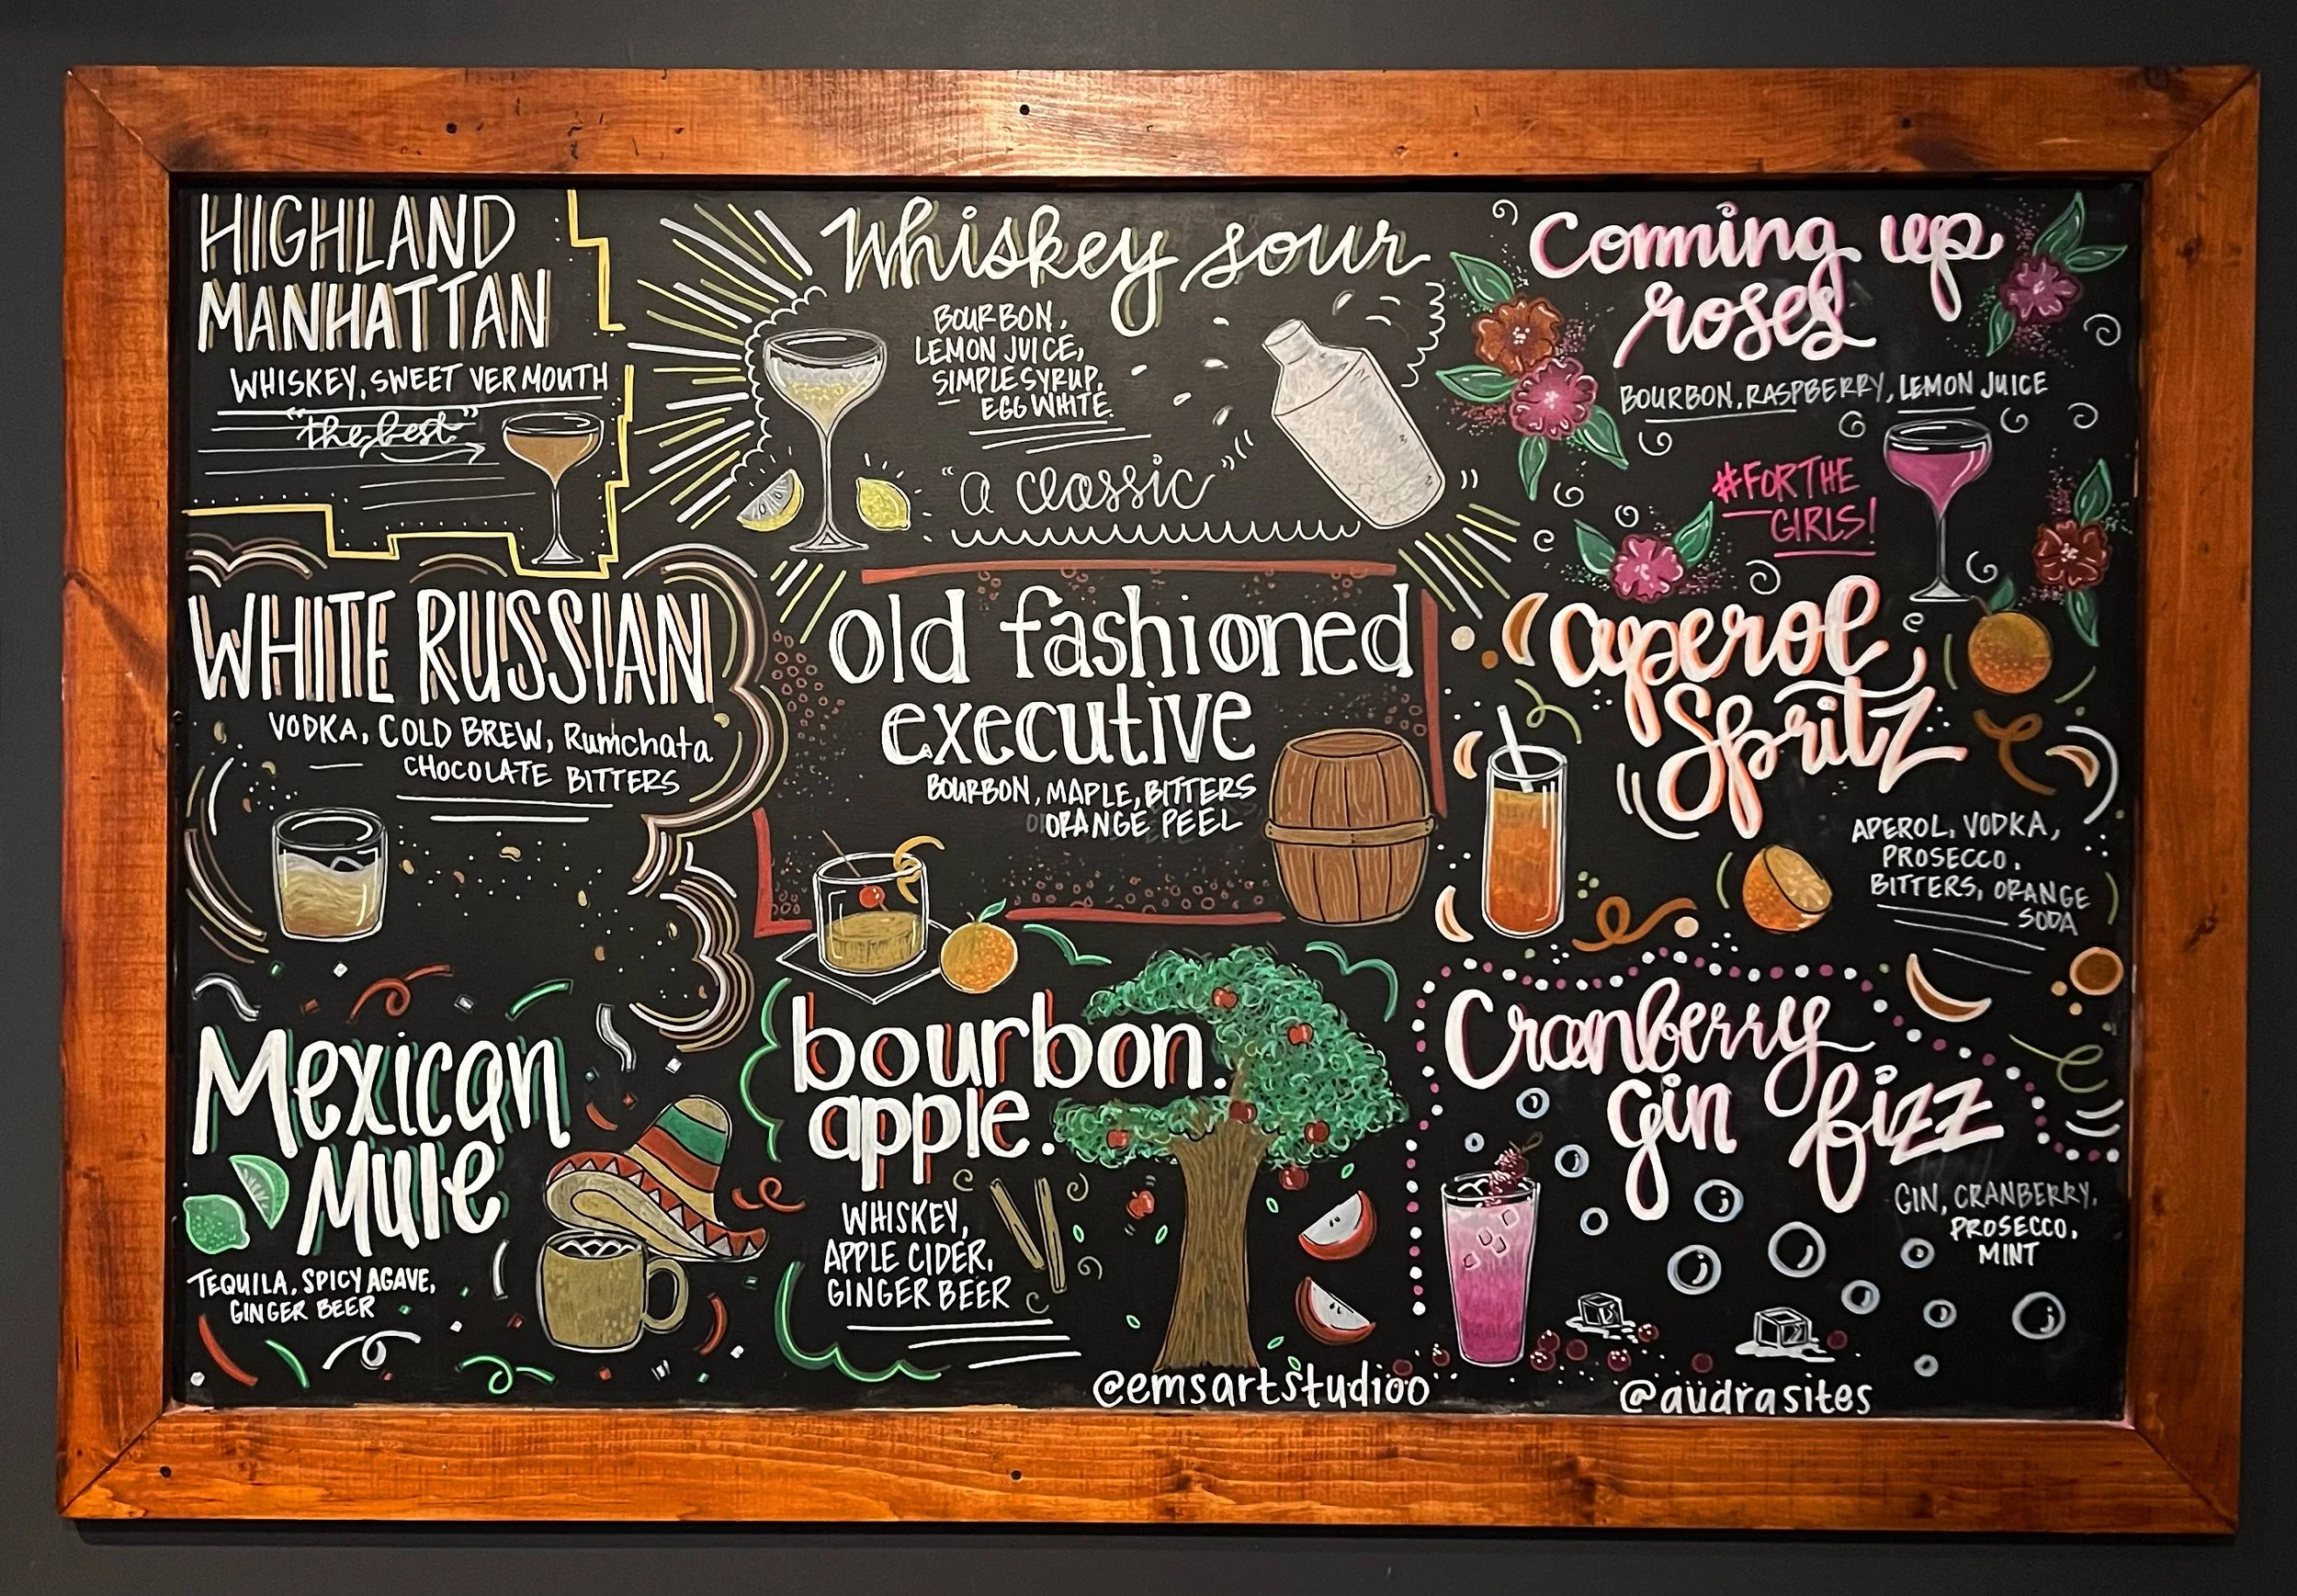 HIGHLAND
MANHATTAN
WHISKEY, SWEET VERMOUTH
"the best"
Whiskey sour
BOURBON,
LEMON JUICE,
SIMPLE SYRUP,
EGG WHITE.
"a classic"
Coming up
roses
BOURBON, RASPBERRY, LEMON JUICE
#FOR THE
GIRLS!
WHITE RUSSIAN
VODKA, COLD BREW, Rumchata
CHOCOLATE BITTERS
old fashioned
executive
BOURBON, MAPLE, BITTERS
ORANGE PEEL
aperol
Spritz
APEROL, VODKA,
PROSECCO,
BITTERS, ORANGE
SODA
Mexican
Mule
TEQUILA, SPICY AGAVE,
GINGER BEER
bourbon.
apple.
WHISKEY,
APPLE CIDER,
GINGER BEER
Cranberry
gin fizz
GIN, CRANBERRY,
PROSECCO,
MINT
@emsartstudioo
@audrasites